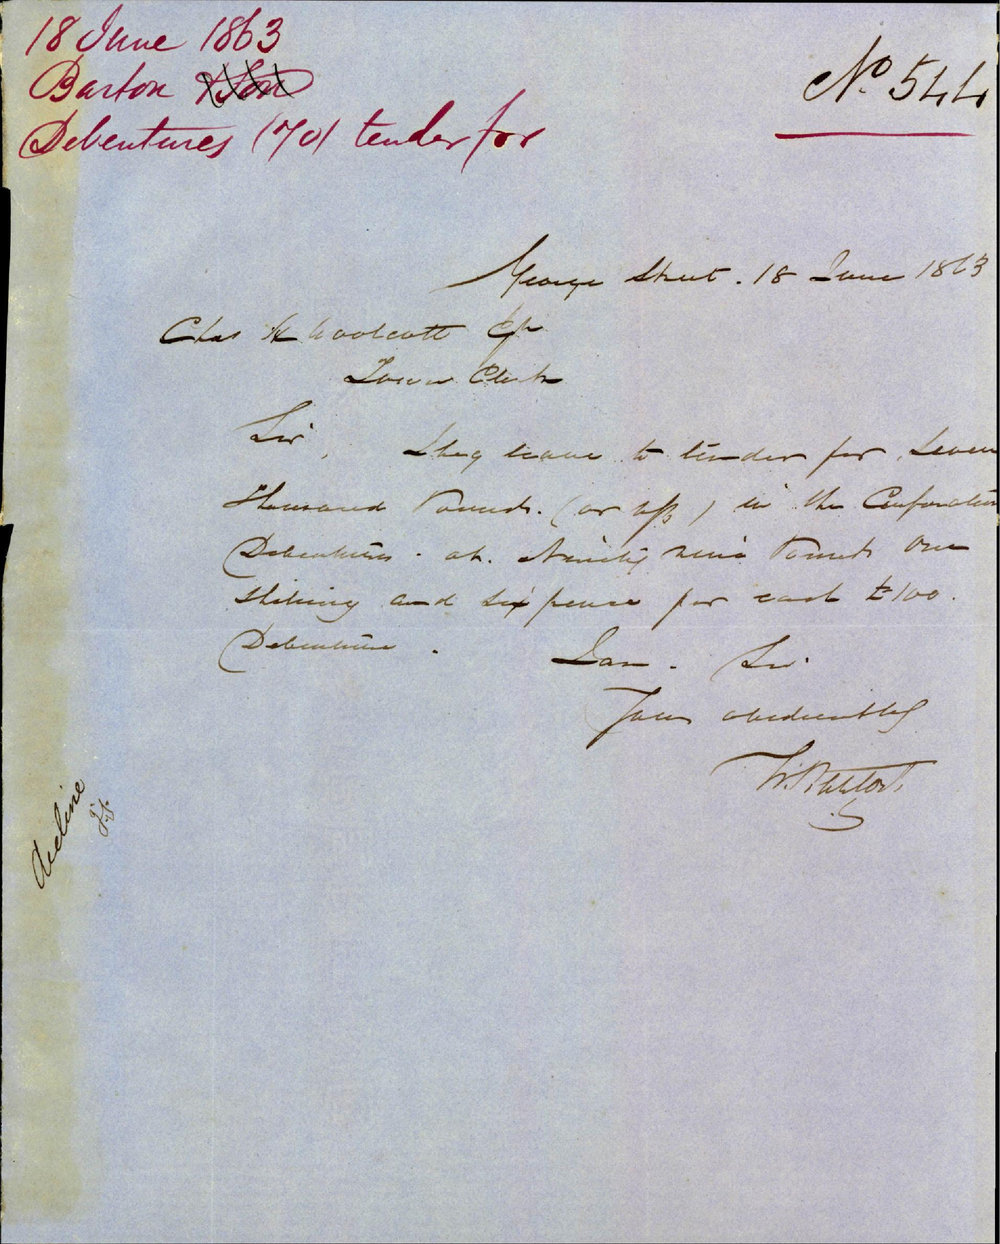 18 June 1863
Barton & Son
Debentures (70) tender for
No. 544
George Street. 18 June 1863
Chas H Woolcott Esq
Town Clerk
Sir, I beg leave to tender for Seven
Thousand Pounds. (or less) in the Corporation
Debentures. at. Ninety nine Pounds One
shilling and six pence for each £100.
Debenture. I am. Sir.
Your obediently
W. Barton
decline